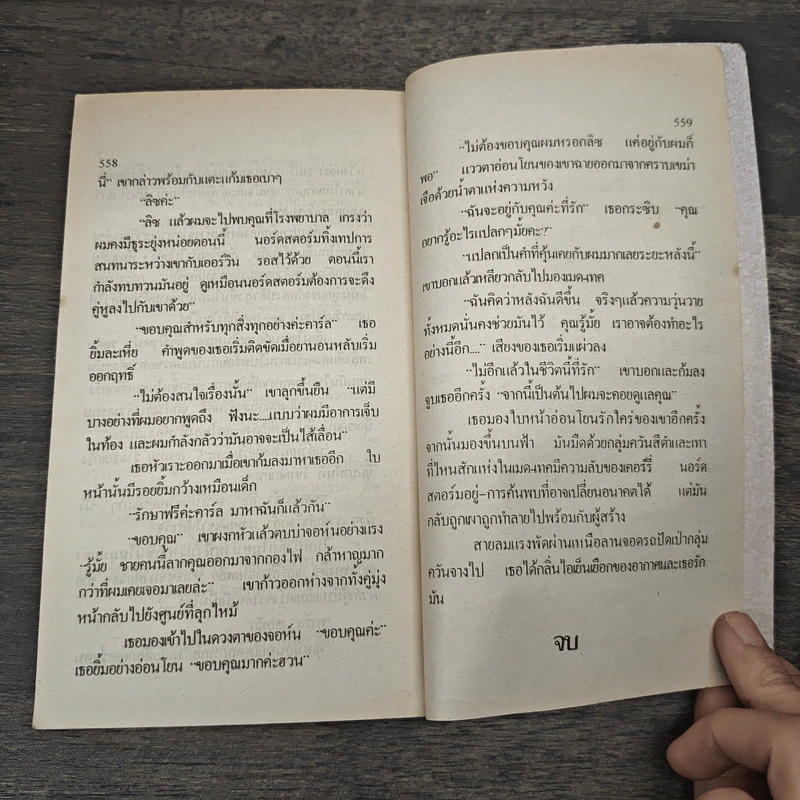 558
นี่” เขากล่าวพร้อมกับแตะแก้มเธอเบาๆ
“ลิซค่ะ”
“ลิซ แล้วผมจะไปพบคุณที่โรงพยาบาล เกรงว่า
ผมคงมีธุระยุ่งหน่อยตอนนี้ นอร์ดสตอร์มทิ้งเทปการ
สนทนาระหว่างเขากับเออร์วิน รอสไว้ด้วย ตอนนี้เรา
กำลังทบทวนมันอยู่ ดูเหมือนนอร์ดสตอร์มต้องการจะดึง
คู่หูลงไปกับเขาด้วย”
“ขอบคุณสำหรับทุกสิ่งทุกอย่างค่ะคาร์ล” เธอ
ยิ้มละเหี่ย คำพูดของเธอเริ่มติดขัดเมื่อยานอนหลับเริ่ม
ออกฤทธิ์
“ไม่ต้องสนใจเรื่องนั้น” เขาลุกขึ้นยืน “แต่มี
บางอย่างที่ผมอยากพูดถึง ฟังนะ....แบบว่าผมมีอาการเจ็บ
ในท้อง และผมกำลังกลัวว่ามันอาจจะเป็นไส้เลื่อน”
เธอหัวเราะออกมาเมื่อเขาก้มลงมาหาเธออีก ใบ
หน้านั้นมีรอยยิ้มกว้างเหมือนเด็ก
“รักษาฟรีค่ะคาร์ล มาหาฉันก็แล้วกัน”
“ขอบคุณ” เขาผงกหัวแล้วตบบ่าจอห์นอย่างแรง
“รู้มั้ย ชายคนนี้ลากคุณออกมาจากกองไฟ กล้าหาญมาก
กว่าที่ผมเคยเจอมาเลยล่ะ” เขาก้าวออกห่างจากทั้งคู่มุ่ง
หน้ากลับไปยังศูนย์ที่ลุกไหม้
เธอมองเข้าไปในดวงตาของจอห์น “ขอบคุณค่ะ”
เธอยิ้มอย่างอ่อนโยน “ขอบคุณมากค่ะฮวน”
559
“ไม่ต้องขอบคุณผมหรอกลิซ แค่อยู่กับผมก็
พอ” แววตาอ่อนโยนของเขาฉายออกมาจากคราบเขม่า
เจือด้วยน้ำตาแห่งความหวัง
“ฉันจะอยู่กับคุณค่ะที่รัก” เธอกระซิบ “คุณ
อยากรู้อะไรแปลกๆมั้ยคะ?”
“แปลกเป็นคำที่คุ้นเคยกับผมมากเลยระยะหลังนี้”
เขาบอกแล้วเหลียวกลับไปมองเมด-เทค
“ฉันคิดว่าหลังฉันดีขึ้น จริงๆแล้วความวุ่นวาย
ทั้งหมดนั่นคงช่วยมันไว้ คุณรู้มั้ย เราอาจต้องทำอะไร
อย่างนี้อีก....” เสียงของเธอเริ่มแผ่วลง
“ไม่อีกแล้วในชีวิตนี้ที่รัก” เขาบอกและก้มลง
จูบเธออีกครั้ง “จากนี้เป็นต้นไปผมจะคอยดูแลคุณ”
เธอมองใบหน้าอ่อนโยนรักใคร่ของเขาอีกครั้ง
จากนั้นมองขึ้นบนฟ้า มันมืดด้วยกลุ่มควันสีดำและเทา
ที่ไหนสักแห่งในเมด-เทคมีความลับของเคอร์รี่ นอร์ด
สตอร์มอยู่–การค้นพบที่อาจเปลี่ยนอนาคตได้ แต่มัน
กลับถูกเผาถูกทำลายไปพร้อมกับผู้สร้าง
สายลมแรงพัดผ่านเหนือลานจอดรถปัดเป่ากลุ่ม
ควันจางไป เธอได้กลิ่นไอเย็นเยือกของอากาศและเธอรัก
มัน
จบ